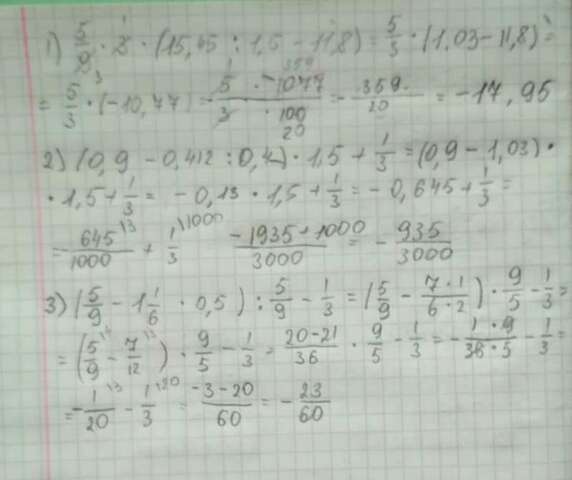 1) 5/9 · 3 · (15,45 : 1,5 - 11,8) = 5/3 · (1,03 - 11,8) =
= 5/3 · (-10,77) - 5 · -1077 / 3 · 100 - 359/20 = -17,95
2) (0,9 - 0,412 : 0,4) · 1,5 + 1/3 = (0,9 - 1,03) ·
· 1,5 + 1/3 = - 0,13 · 1,5 + 1/3 = - 0,645 + 1/3 =
= 645/1000 + 1/3 -1935+1000/3000 = - 935/3000
3) (5/9 - 1 1/6 · 0,5) : 5/9 - 1/3 = (5/9 - 7·1/6·2) · 9/5 - 1/3 =
= (5/9 - 7/12) · 9/5 - 1/3 = 20-21/36 · 9/5 - 1/3 = - 1·9/36·5 - 1/3 =
= - 1/20 - 1/3 = -3-20/60 = - 23/60